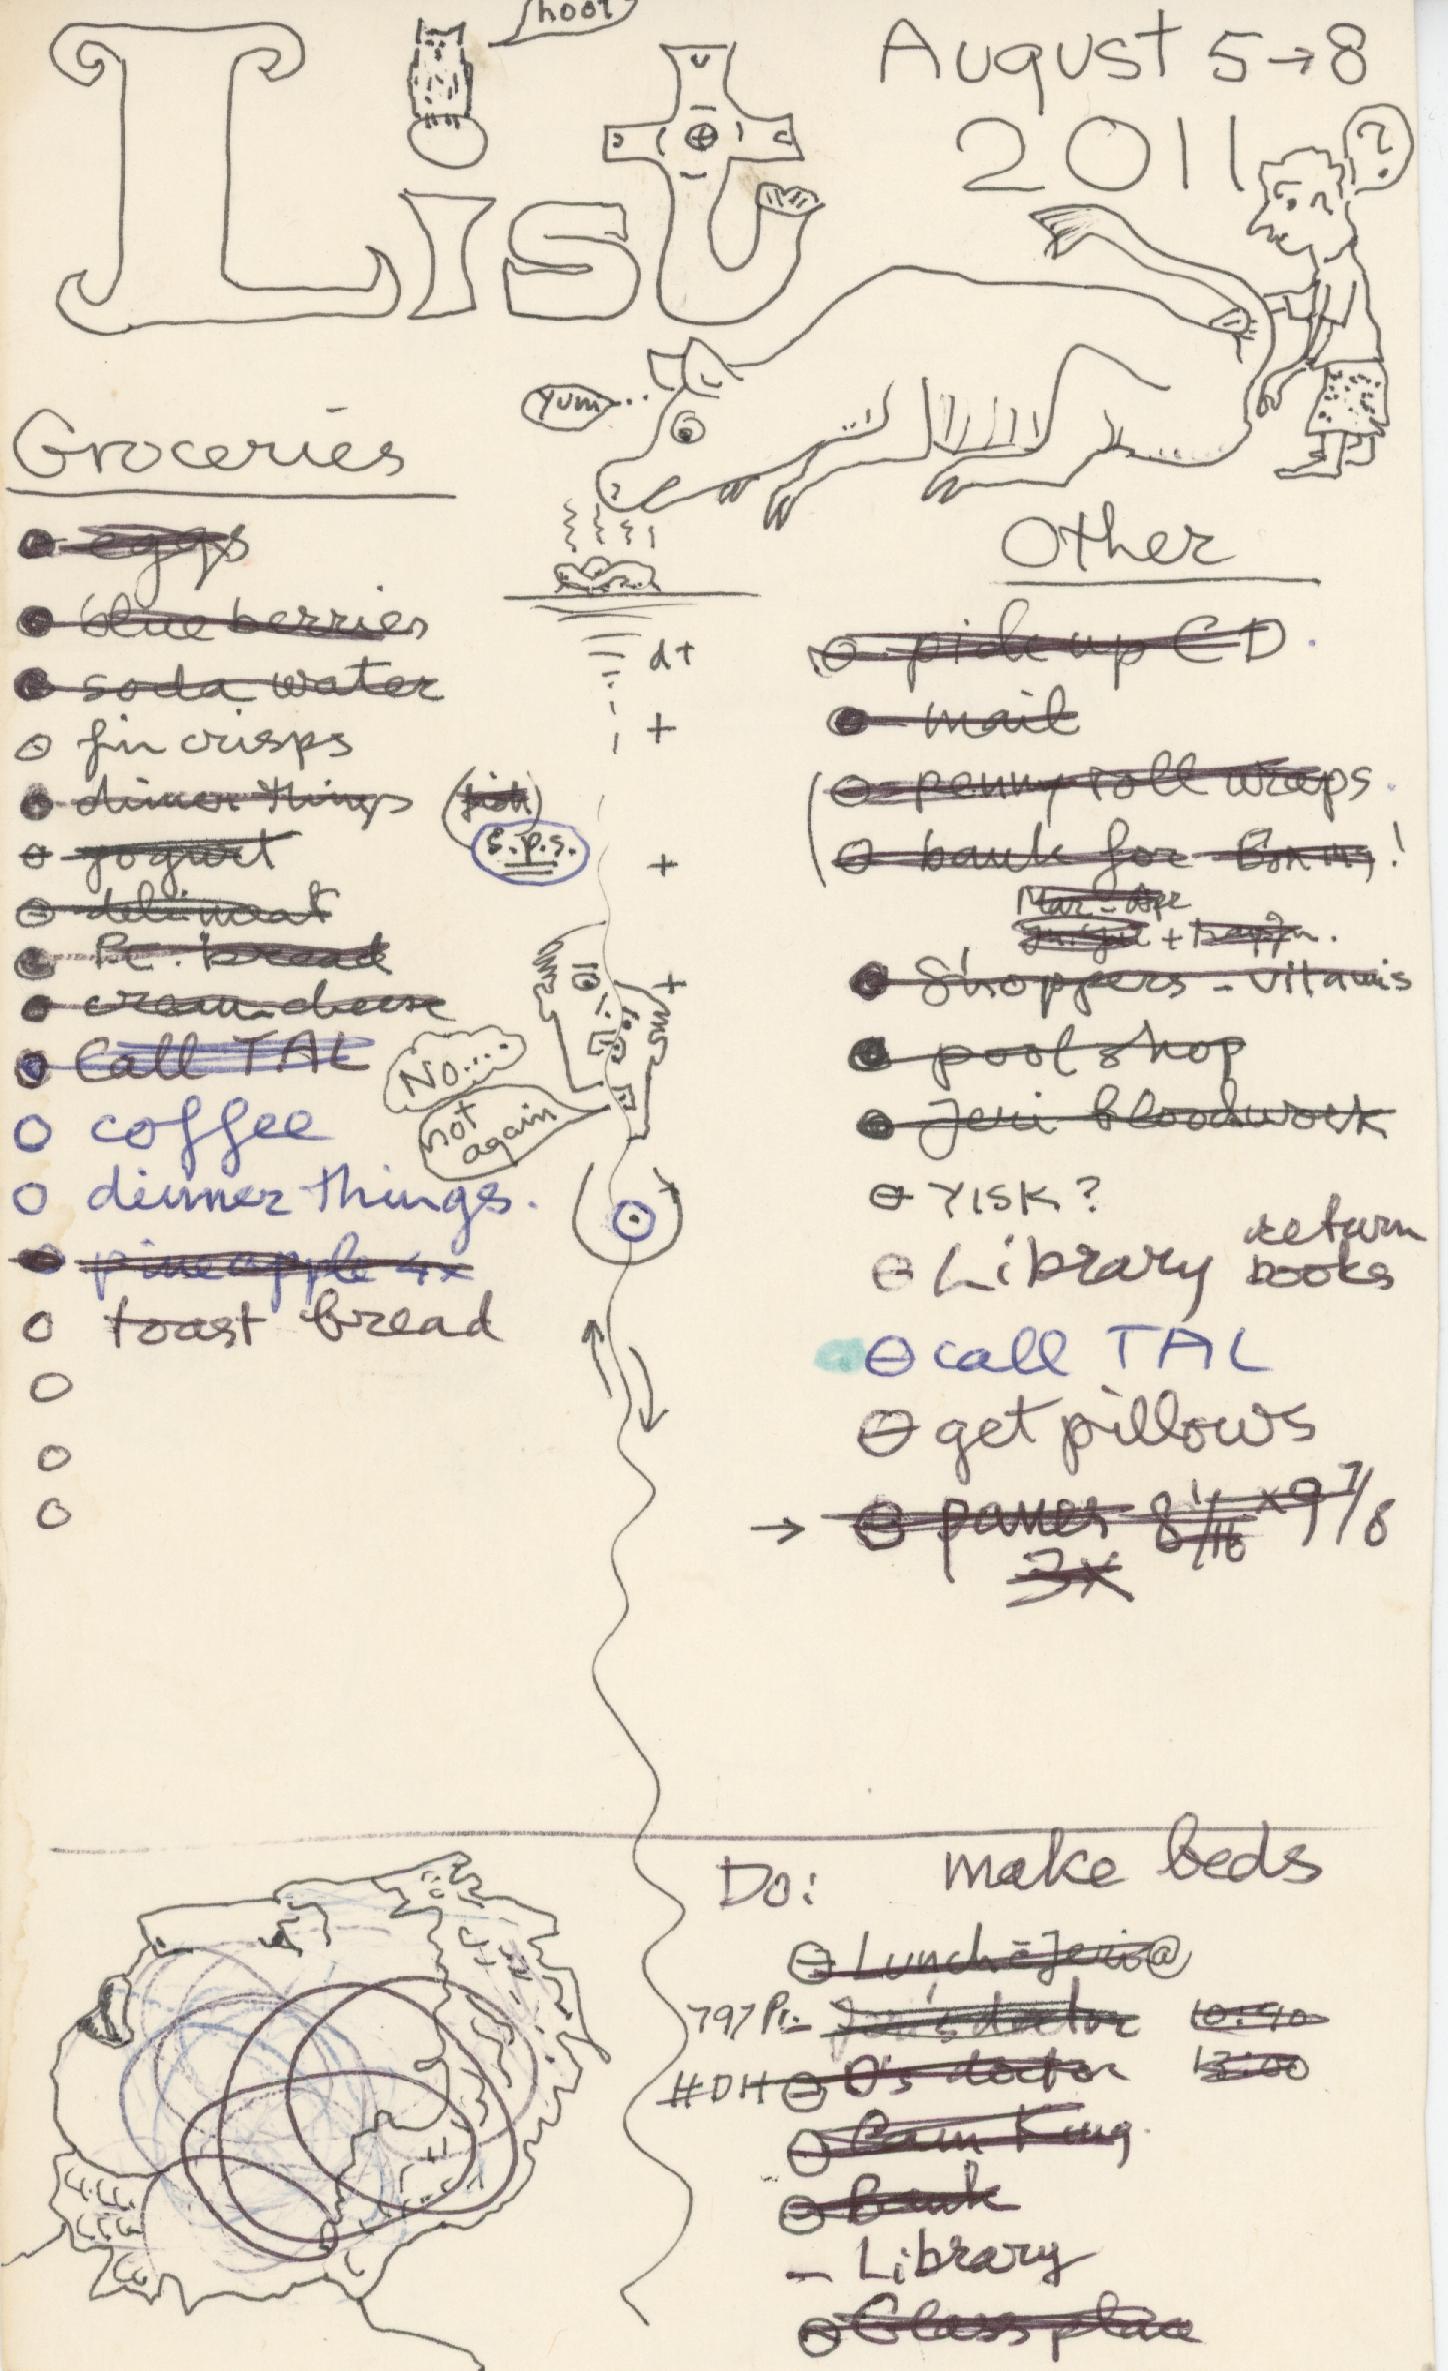 hoot
List
August 5→8
2011
?
yum...
Groceries
eggs
blueberries
soda water
fin crisps
dinner things (fish)
s.p.s.
yogurt
deli meat
Pc. bread
cream cheese
Call TAL
coffee
dinner things.
pineapple 4x
toast bread
d+
+
+
+
No....
not again
Other
pick up CD
mail
penny roll wraps.
bank for
Mar-Apr
Shoppers - vitamis
pool shop
Jeri bloodwork
YISK?
Library return books
call TAL
get pillows
→ panes 8 1/16 x 9 7/8
3x
Do: make beds
Lunch - Jeri @
797 Pi- Jeri's doctor 10:40
#DH D's doctor
King
Bank
- Library
Glass place